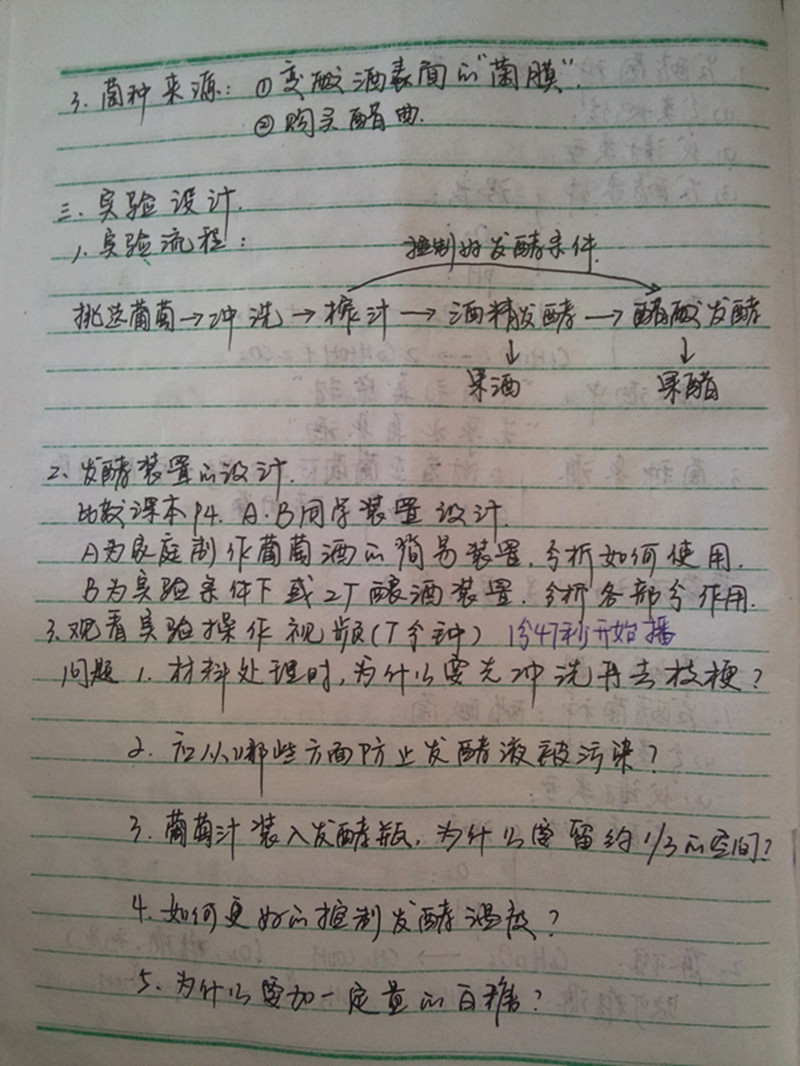 3. 菌种来源: ①变酸酒表面的"菌膜".
②购买醋曲.
三、实验设计.
1. 实验流程:
控制好发酵条件.
挑选葡萄→冲洗→榨汁→酒精发酵→醋酸发酵
↓ ↓
果酒 果醋
2、发酵装置的设计.
比较课本P4. A.B同学装置设计.
A为家庭制作葡萄酒的简易装置. 分析如何使用.
B为实验条件下或工厂酿酒装置. 分析各部分作用.
3. 观看实验操作视频(7分钟) 1分47秒开始播
问题 1. 材料处理时, 为什么要先冲洗再去枝梗?
2. 应从哪些方面防止发酵液被污染?
3. 葡萄汁装入发酵瓶, 为什么要留约1/3的空间?
4. 如何更好的控制发酵温度?
5. 为什么要加一定量的白糖?